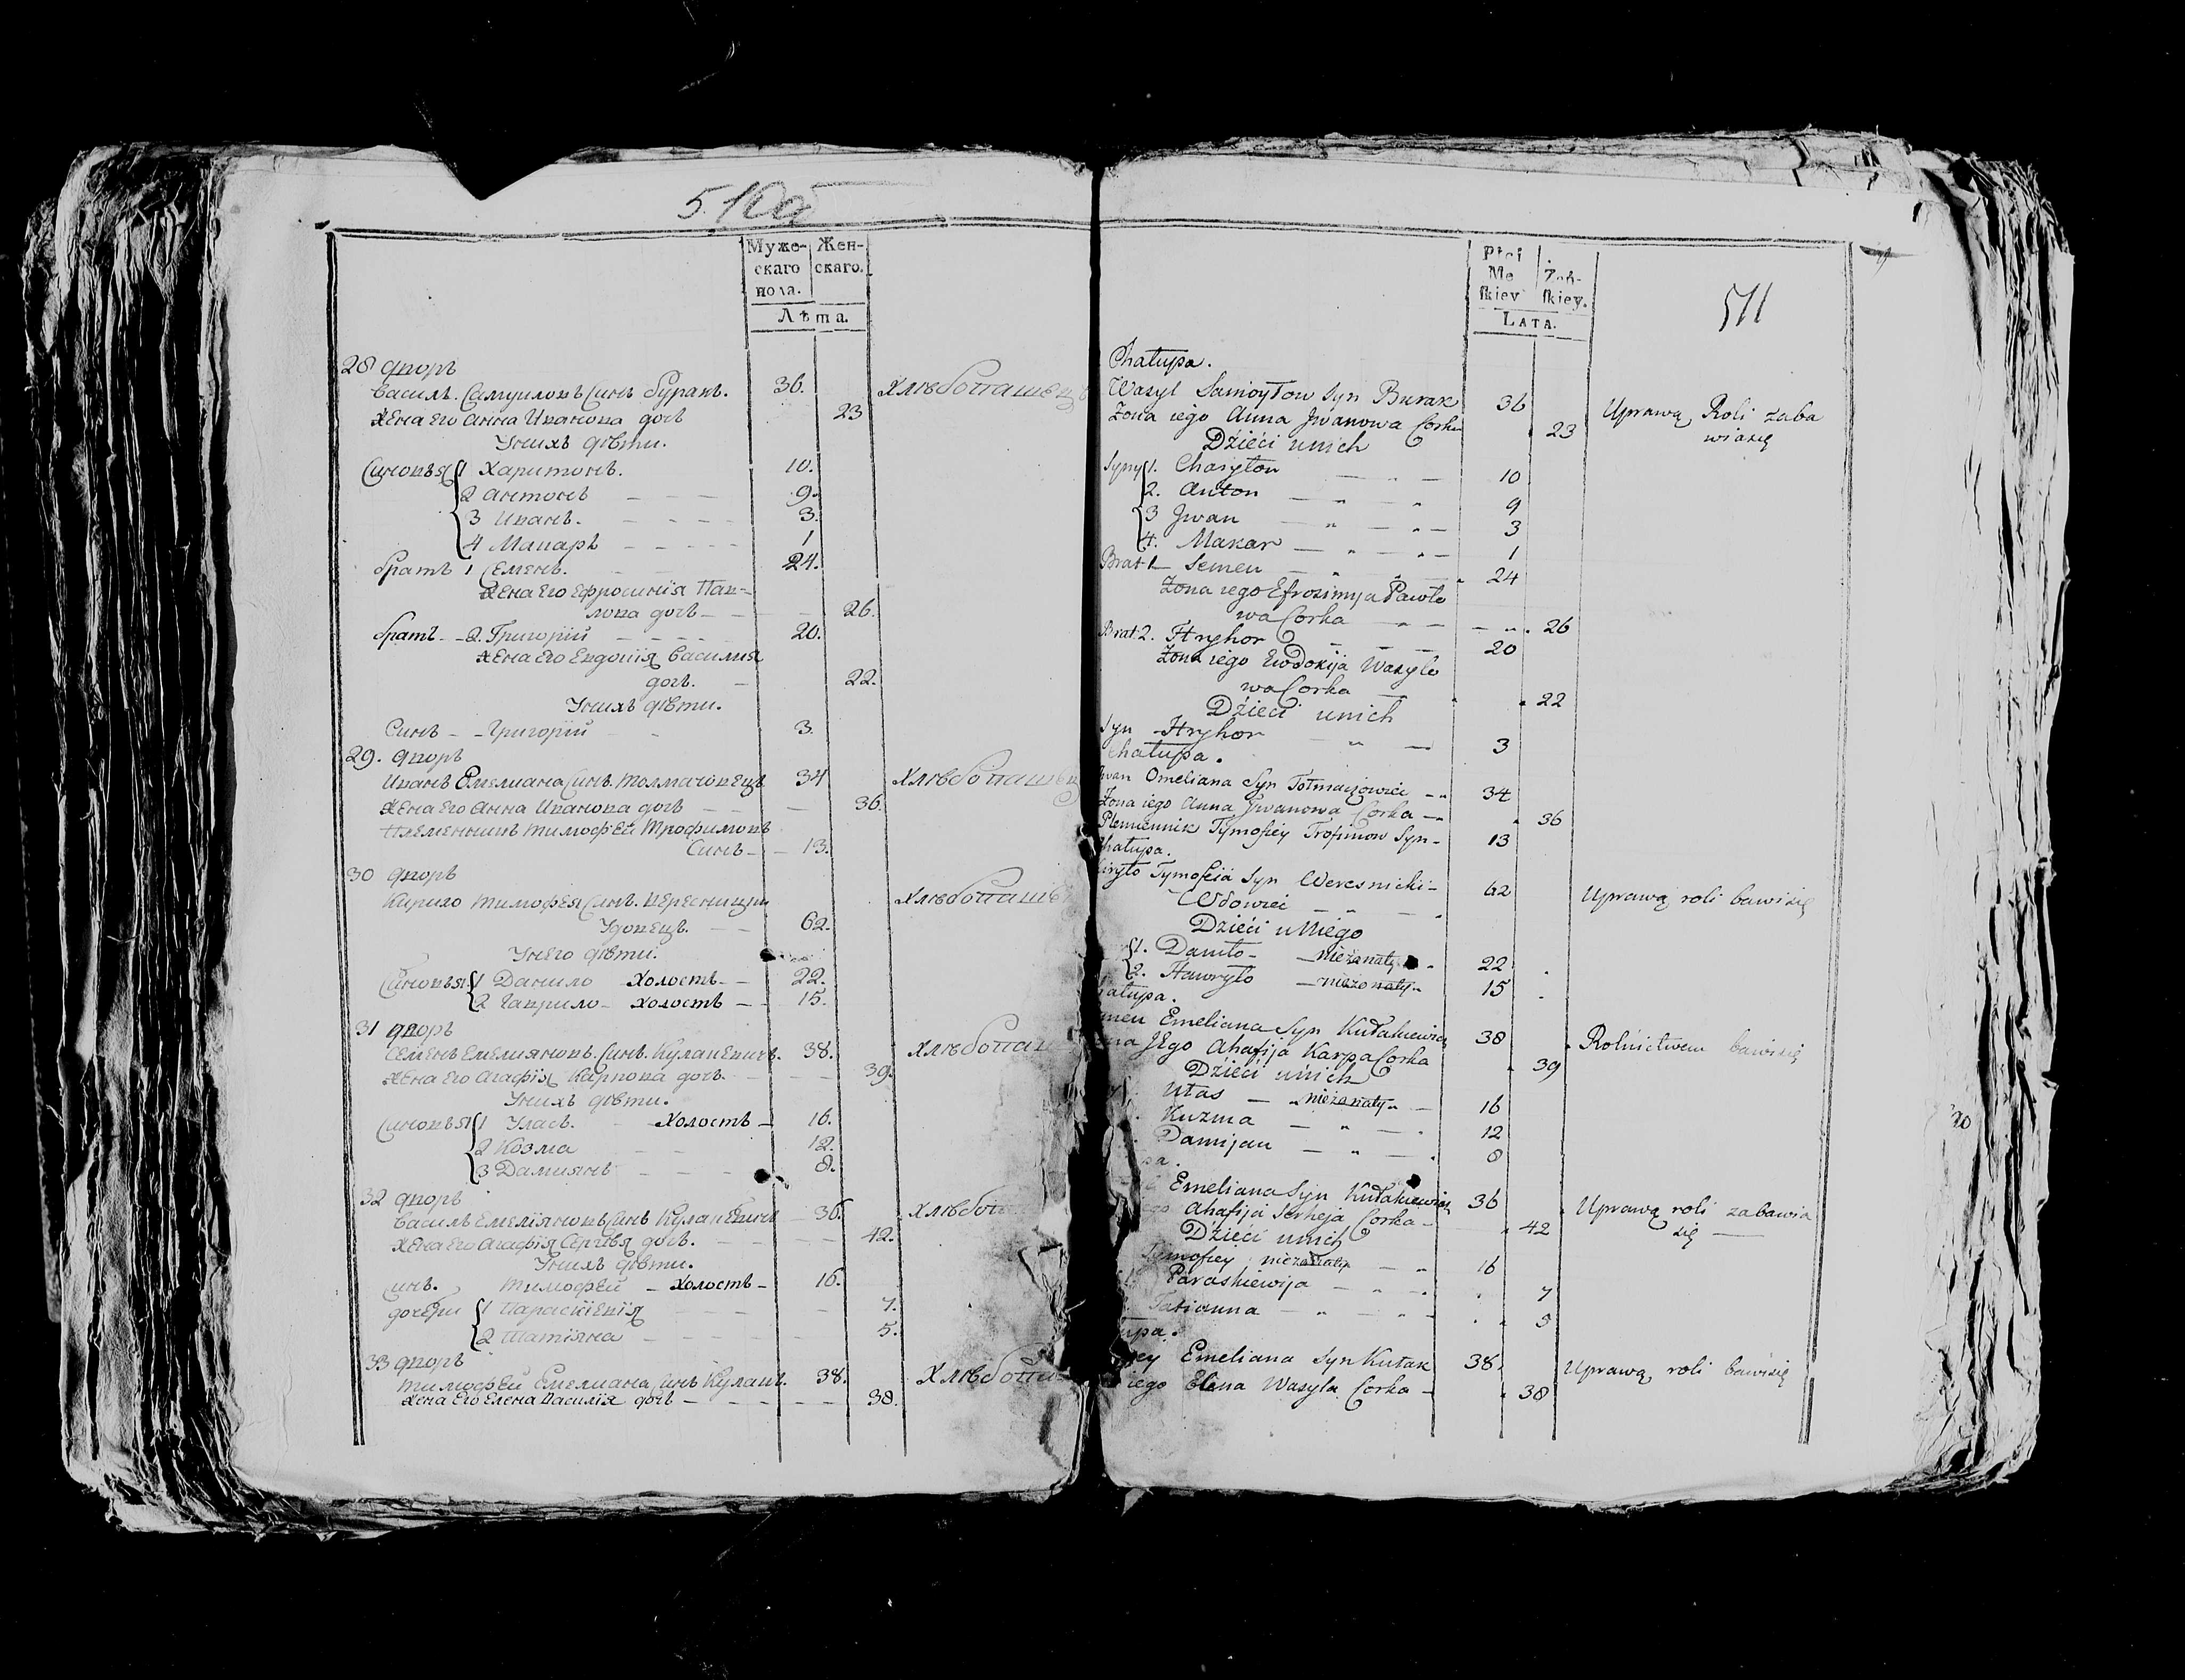 510
Муже-
скаго
пола.
Жен-
скаго.
Лѣта.
28 дворъ
Василь Самуиловъ синъ Буракъ. 36. Хлѣбопашецъ
жена его Анна Иванова дочь 23
У нихъ дѣти.
Синовья 1 Харитонъ. 10.
2 Антонъ 9.
3 Иванъ. 3.
4 Макаръ 1
братъ 1 Семенъ. 24.
жена его Ефросинія Пав-
лова дочь 26.
братъ 2. Григорій 20.
жена его Евдокія Василия
дочь. 22.
У нихъ дѣти.
Синъ Григорій 3.
29. дворъ
Иванъ Емелиана синъ Толмачовецъ 34 Хлѣбопашец
жена его Анна Иванова дочь 36.
Племенникъ Тимофей Трофимовъ
Синъ 13.
30 дворъ
Кирило Тимофея синъ Вересницки Хлѣбопашец
Удовецъ. 62.
У него дѣти.
Синовья 1 Данило Холостъ 22.
2 Гаврило Холостъ 15.
31 дворъ
Семенъ Емелияновъ синъ Кулакевичъ. 38. Хлѣбопаш
жена его Агафія Карпова дочь. 39.
У нихъ дѣти.
Синовья 1 Уласъ. Холостъ 16.
2 Козма 12.
3 Дамиянъ 8.
32 дворъ
Василь Емелияновъ синъ Кулакевичъ 36. Хлѣбоп
жена его Агафія Сергѣя дочь. 42.
У нихъ дѣти.
синъ. Тимофей Холостъ 16.
дочери 1 Параскіевія 7.
2 Татіяна 5.
33 дворъ
Тимофей Емелиана синъ Кулакъ. 38. Хлѣбопа
жена его Елена Василія дочь 38.
Płci
Mę
ſkiey
Żeń-
ſkiey.
LATA.
511
Chałupa.
Wasyl Samoyłow Syn Burak 36 Uprawą Roli zaba
Żona iego Anna Jwanowa Corka 23 wiasię
Dzieci unich
Syny 1. Charyton 10
2. Anton 9
3 Jwan 3
4. Makar 1
Brat 1 Semen 24
Żona iego Efrozimija Pawło
wa Corka 26
Brat 2. Hryhor 20
Żona iego Ewdokija Wasyle
wa Corka 22
Dzieci unich
Syn Hryhor 3
Chałupa.
Jwan Omeliana Syn Tołmaczowiec 34
Żona iego Anna Jwanowa Corka 36
Plemiennik Tymofiey Trofimow Syn 13
Chałupa.
Kiryło Tymofeia Syn Weresnicki 62 Uprawą roli bawisię
Wdowiec
Dzieci uNiego
1. Daniło nieżonaty 22
2. Hawryło nieżonaty 15
ałupa.
men Emeliana Syn Kułakiewicz 38 Rolnictwem bawisię
na JEgo Ahafija Karpa Corka 39
Dzieci unich
Ułas nieżonaty 16
Kuzma 12
Damijan 8
pa.
Emeliana Syn Kułakiewicz 36 Uprawą roli zabawia
ego Ahafija Serheja Corka 42 się
Dzieci unich
Tymofiey nieżonaty 16
Paraskiewija 7
Tatianna 5
upa.
ey Emeliana Syn Kułak 38 Uprawą roli bawisię
iego Elena Wasyla Corka 38